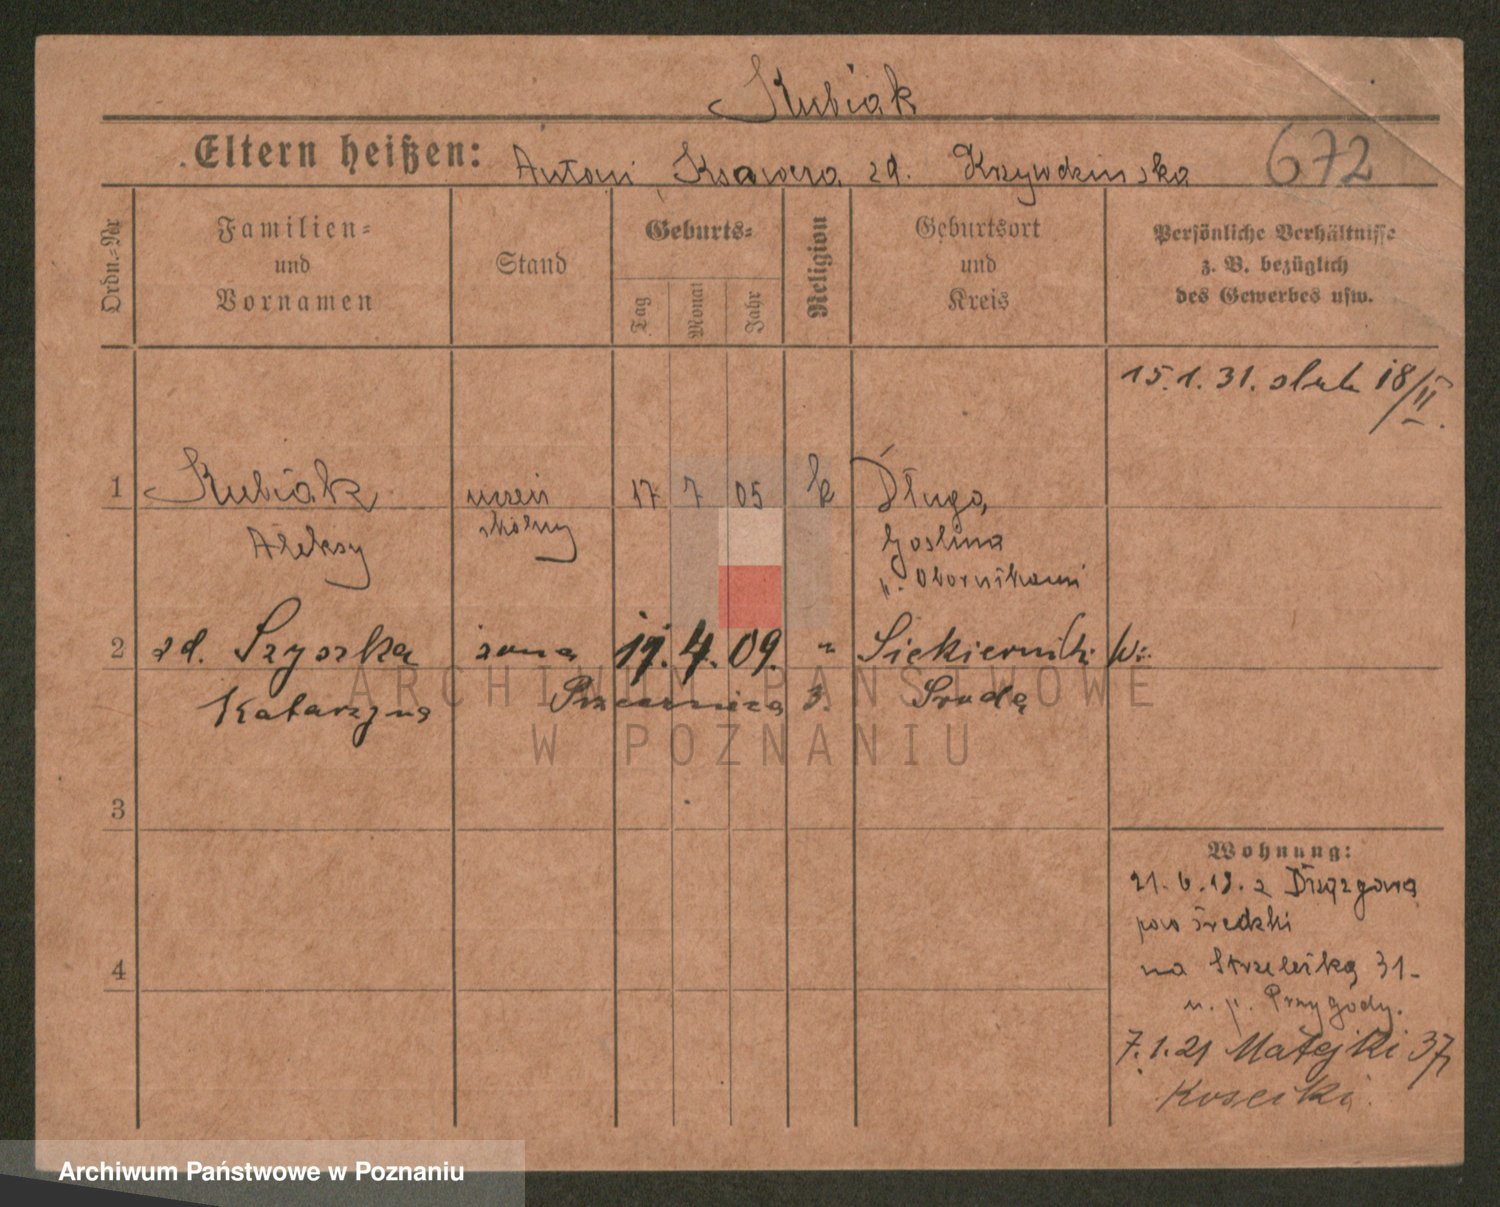 Kubiak
Eltern heißen: Antoni Ksawera zd. Krzywdzinska
672
Ordn.-Nr
Familien-
und
Vornamen
Stand
Geburts-
Tag
Monat
Jahr
Religion
Geburtsort
und
Kreis
Persönliche Verhältnisse
z. B. bezüglich
des Gewerbes usw.
15.1.31. 18/II.
1 Kubiak uczeń 17 7 05 k Długa
Aleksy szkolny Goslina
p. Obornikami
2 zd. Szyszka żona 17. 4. 09. " Siekierniki W:
Katarzyna Środa
ARCHIWUM PAŃSTWOWE
W POZNANIU
3
Wohnung:
21.6.18. z
pow średzki
4
na Strzelecką 31-
u. p. Przygody.
7.1.21 Matejki 37
Archiwum Państwowe w Poznaniu